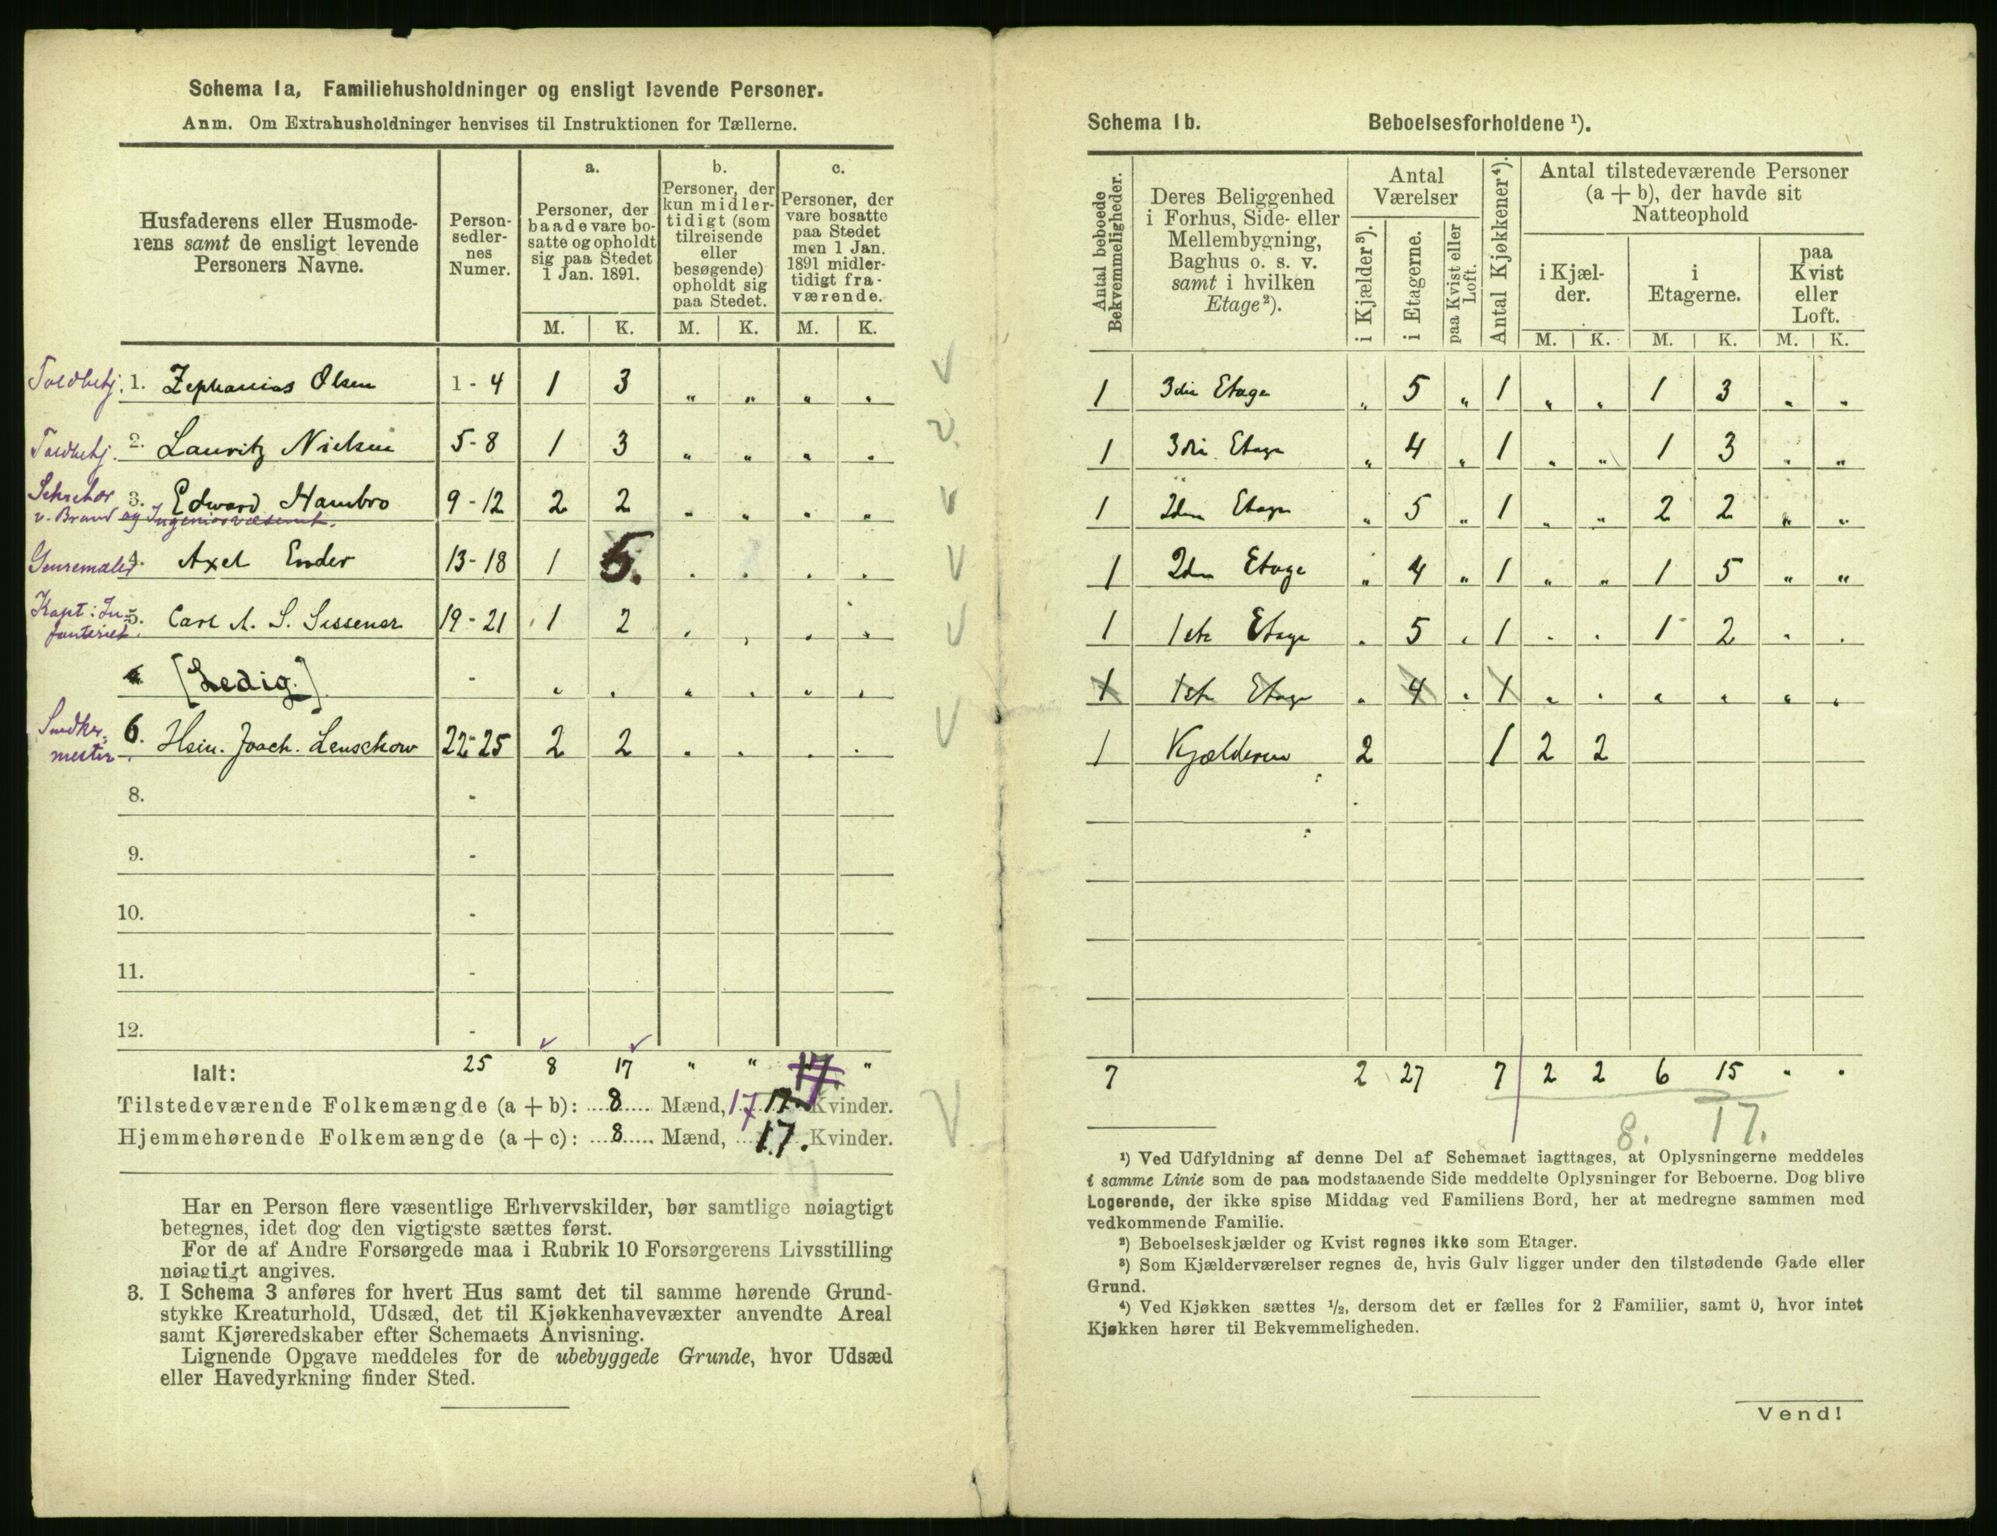 Schema 1a, Familiehusholdninger og ensligt levende Personer.
Anm. Om Extrahusholdninger henvises til Instruktionen for Tællerne.
Husfaderens eller Husmode-
rens samt de ensligt levende
Personers Navne.
Person-
sedler-
nes
Numer.
a.
Personer, der
baade vare bo-
satte og opholdt
sig paa Stedet
1 Jan. 1891.
b.
Personer, der
kun midler-
tidigt (som
tilreisende
eller
besøgende)
opholdt sig
paa Stedet.
c.
Personer, der
vare bosatte
paa Stedet
men 1 Jan.
1891 midler-
tidigt fra-
værende.
M. K. M. K. M. K.
Toldbetj. 1. Zephanias Olsen 1 - 4 1 3 " " " "
Toldbetj. 2. Lauritz Nielsen 5 - 8 1 3 " " " "
Sekretær 3. Edward Hambro 9 - 12 2 2 " " " "
v. Brand og Ingeniørvæsenet.
Genremaler 4. Axel Ender 13 - 18 1 5. " " " "
Kapt: i In-
fanteriet. 5. Carl A. S. Sissener 19 - 21 1 2 " " " "
[Ledig.] - " " " " " "
Snedker-
mester. 6. Hein. Joach. Lenschow 22 - 25 2 2 " " " "
8. -
9. -
10. -
11. -
12. -
Ialt: 25 8 17 " " 17 "
Tilstedeværende Folkemængde (a + b): 8 Mænd, 17 17 Kvinder.
Hjemmehørende Folkemængde (a + c): 8 Mænd, 17. Kvinder.
Har en Person flere væsentlige Erhvervskilder, bør samtlige nøiagtigt
betegnes, idet dog den vigtigste sættes først.
For de af Andre Forsørgede maa i Rubrik 10 Forsørgerens Livsstilling
nøiagtigt angives.
3. I Schema 3 anføres for hvert Hus samt det til samme hørende Grund-
stykke Kreaturhold, Udsæd, det til Kjøkkenhavevæxter anvendte Areal
samt Kjøreredskaber efter Schemaets Anvisning.
Lignende Opgave meddeles for de ubebyggede Grunde, hvor Udsæd
eller Havedyrkning finder Sted.
Schema 1b. Beboelsesforholdene ¹).
Antal beboede
Bekvemmeligheder.
Deres Beliggenhed
i Forhus, Side- eller
Mellembygning,
Baghus o. s. v.
samt i hvilken
Etage²).
Antal
Værelser
i Kjælder³).
i Etagerne.
paa Kvist eller
Loft.
Antal Kjøkkener⁴).
Antal tilstedeværende Personer
(a + b), der havde sit
Natteophold
i Kjæl-
der.
i
Etagerne.
paa
Kvist
eller
Loft.
M. K. M. K. M. K.
1 3die Etage " 5 " 1 " " 1 3 " "
1 3die Etage " 4 " 1 " " 1 3 " "
1 2den Etage " 5 " 1 " " 2 2 " "
1 2den Etage " 4 " 1 " " 1 5 " "
1 1ste Etage " 5 " 1 " " 1 2 " "
1 1ste Etage " 4 " 1 " " " " " "
1 Kjælderen 2 1 2 2
7 2 27 7 2 2 6 15 " "
8. 17.
¹) Ved Udfyldning af denne Del af Schemaet iagttages, at Oplysningerne meddeles
i samme Linie som de paa modstaaende Side meddelte Oplysninger for Beboerne. Dog blive
Logerende, der ikke spise Middag ved Familiens Bord, her at medregne sammen med
vedkommende Familie.
²) Beboelseskjælder og Kvist regnes ikke som Etager.
³) Som Kjælderværelser regnes de, hvis Gulv ligger under den tilstødende Gade eller
Grund.
⁴) Ved Kjøkken sættes ½, dersom det er fælles for 2 Familier, samt 0, hvor intet
Kjøkken hører til Bekvemmeligheden.
Vend!